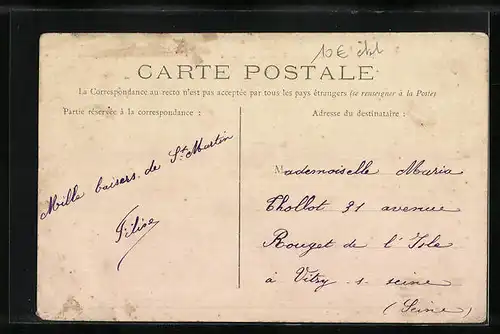 10€
CARTE POSTALE
La Correspondance au recto n'est pas acceptée par tous les pays étrangers (se renseigner à la Poste)
Partie réservée à la correspondance :
Mille baisers de St Martin
Adresse du destinataire :
Mademoiselle Maria
Thollot 31 avenue
Rouget de l'Isle
à Vitry s- seine
(Seine)